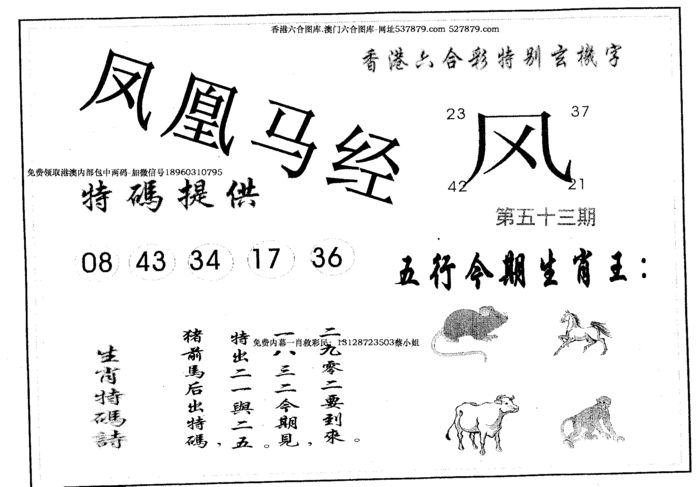 香港六合图库.澳门六合图库-网址537879.com 527879.com
香港六合彩特别玄機字
凤凰马经
23
37
风
42
21
免费领取港澳内部包中两码-加微信号18960310795
特碼提供
第五十三期
08 43 34 17 36
五行今期生肖王：
免费内幕一肖救彩民：13128723503蔡小姐
二九零二要到來。
一八三二今期見，
特出二一與二五。
豬前馬后出特碼，
生肖特碼詩